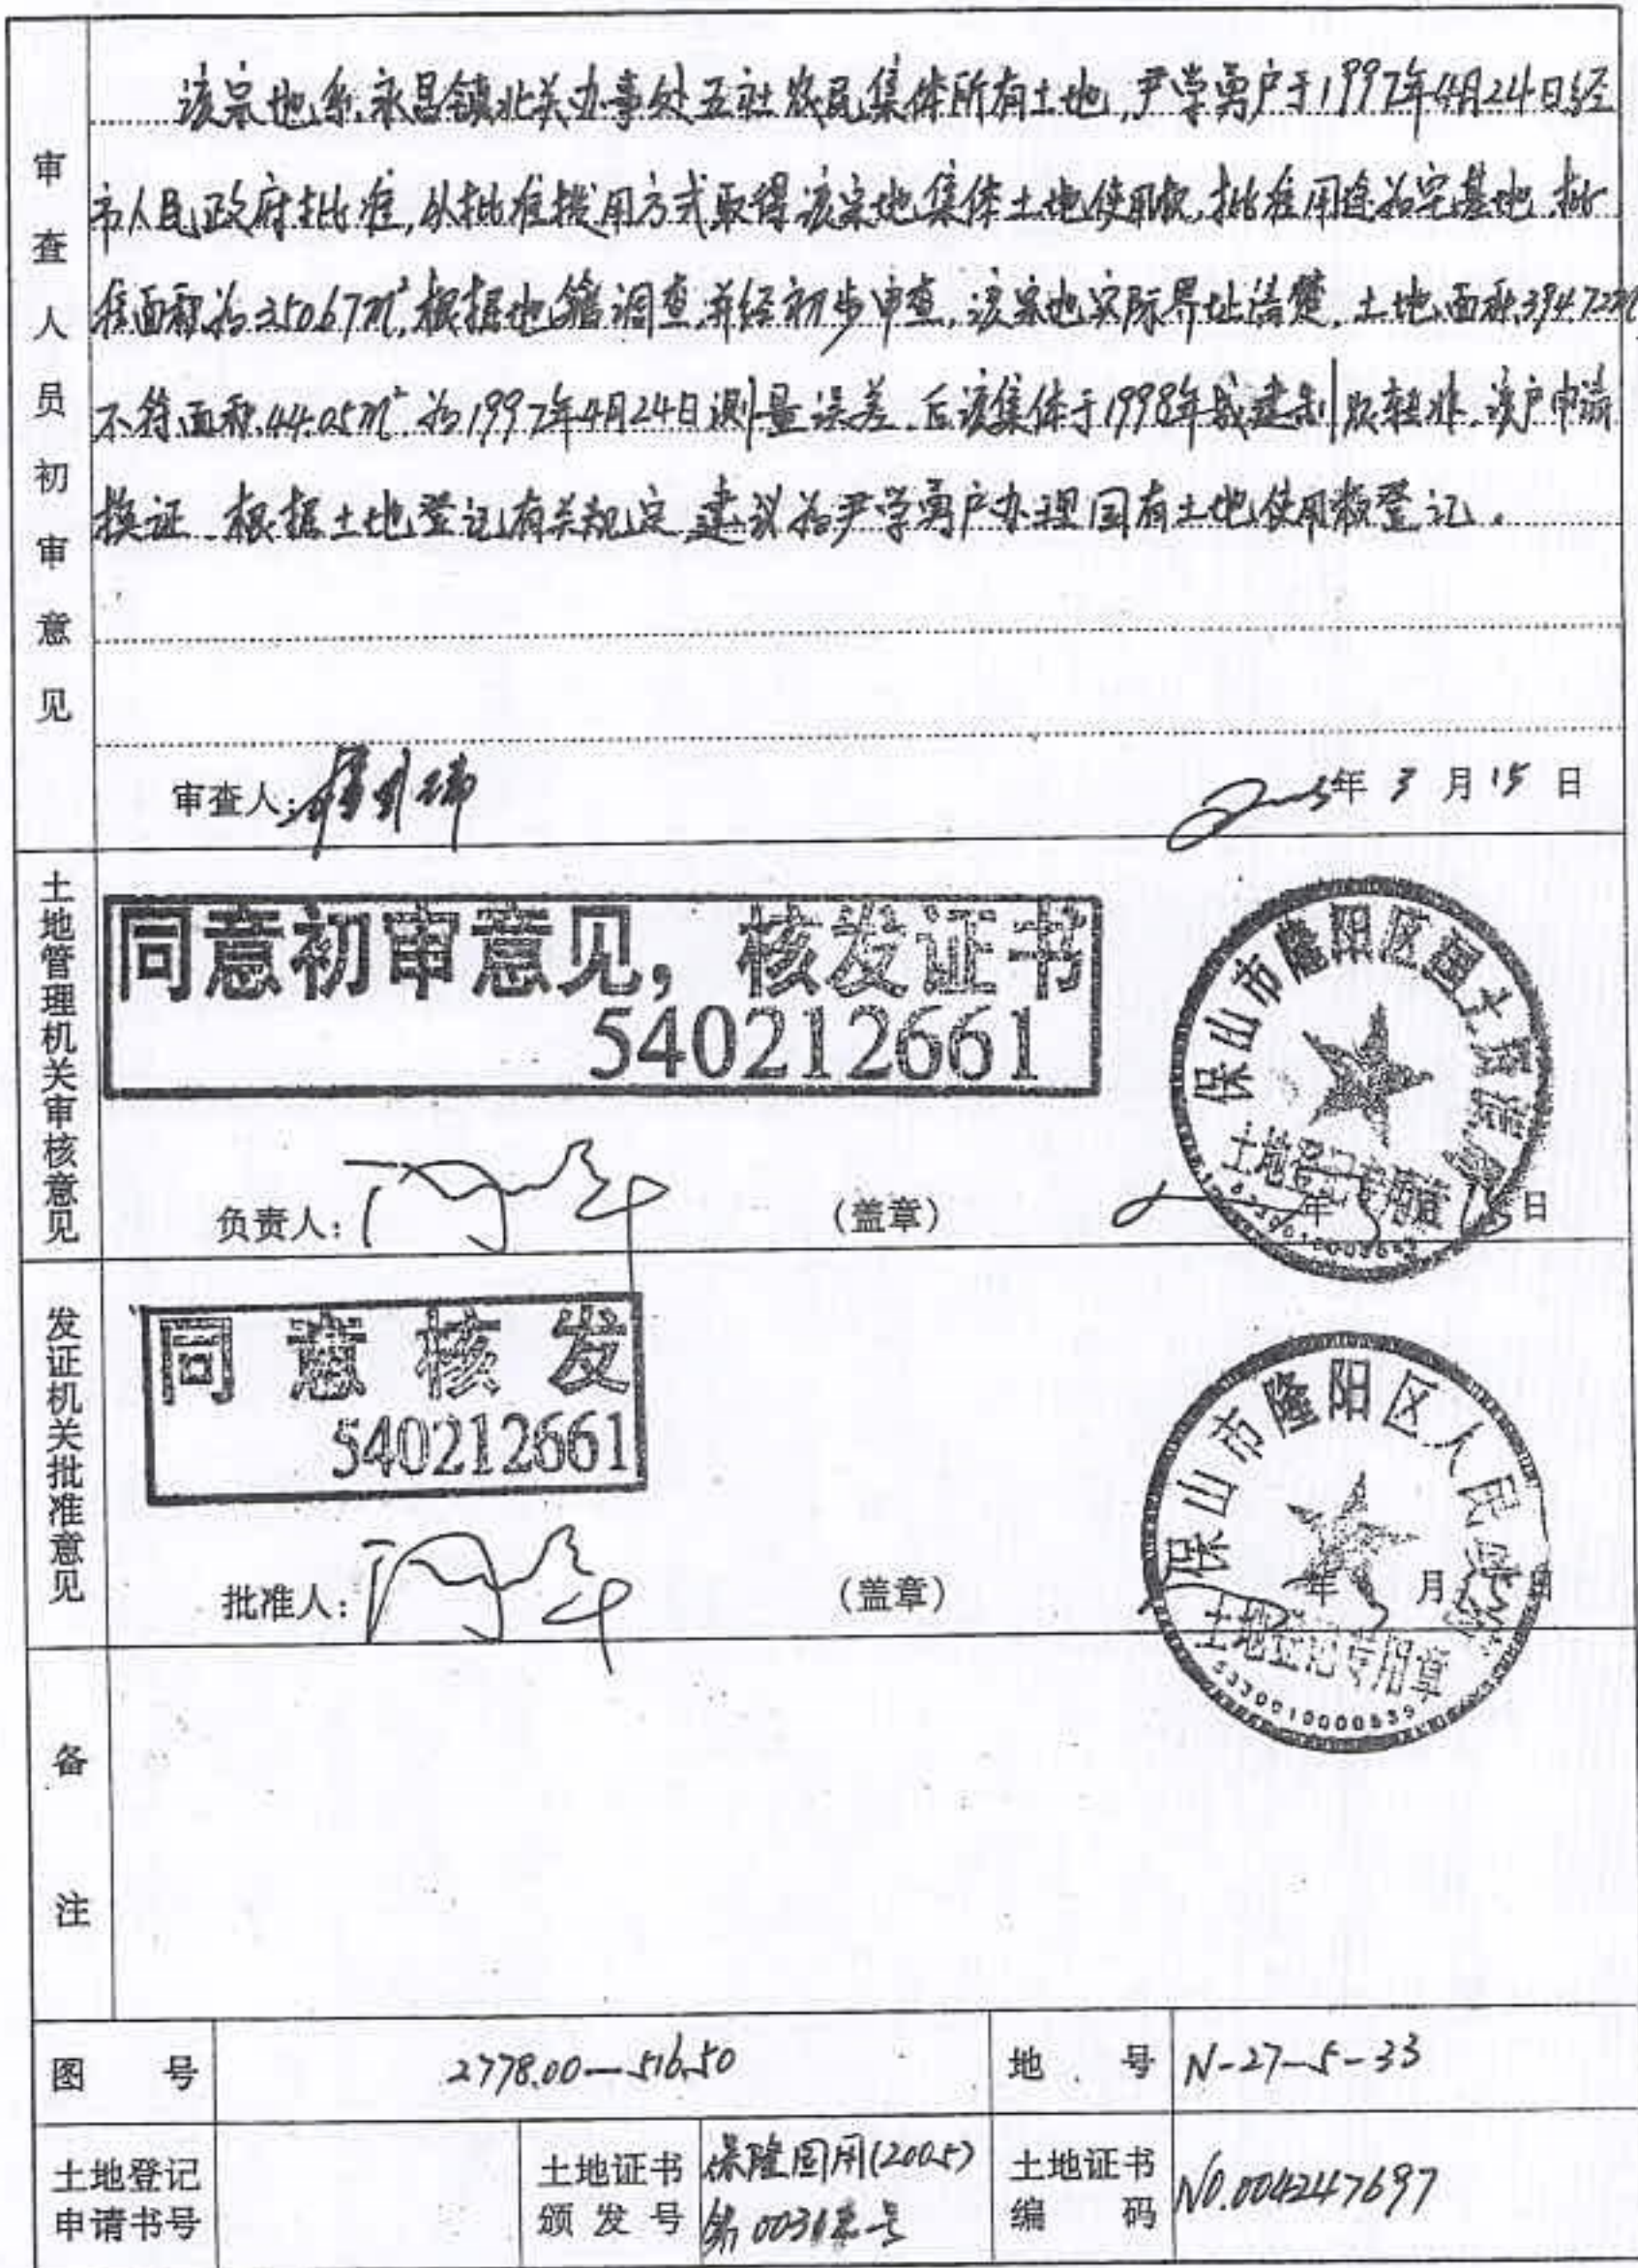 审查人员初审意见
该宗地系永昌镇北关办事处五社农民集体所有土地,尹学勇户于1997年4月24日经
市人民政府批准,从批准拨用方式取得该宗地集体土地使用权,批准用途为宅基地.批
准面积为350.67m²,根据地籍调查,并经初步审查,该宗地实际界址清楚.土地面积394.72m²
不符面积44.05m²为1997年4月24日测量误差.后该集体于1998年成建制农转非.该户申请
换证.根据土地登记有关规定,建议为尹学勇户办理国有土地使用权登记.
审查人:
2005年3月15日
土地管理机关审核意见
同意初审意见,核发证书
540212661
保山市隆阳区国土资源局
土地登记专用章
负责人:
(盖章)
年
日
发证机关批准意见
同意核发
540212661
保山市隆阳区人民政府
土地登记专用章
5330010000539
批准人:
(盖章)
年 月 日
备注
图号 2778.00—516.50 地号 N-27-5-33
土地登记申请书号
土地证书颁发号 保隆国用(2005)
第 号
土地证书编码 NO.0042247697